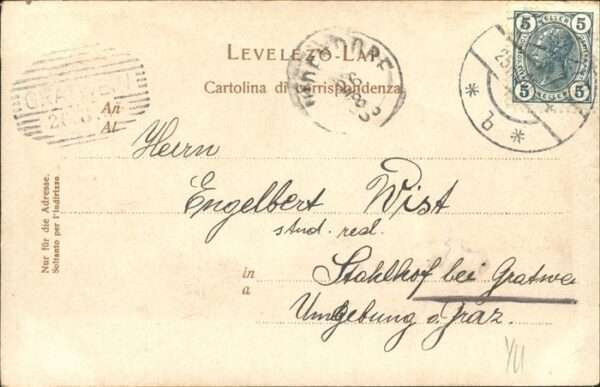 LEVELEZŐ-LAP
Cartolina di corrispondenza
5 5
HELLER
5 5
* b *
An
Al
Herrn
Engelbert Wist
stud. red.
in
a
Stahlhof bei Gratwe
Umgebung v. Graz.
Nur für die Adresse.
Soltanto per l'indirizzo